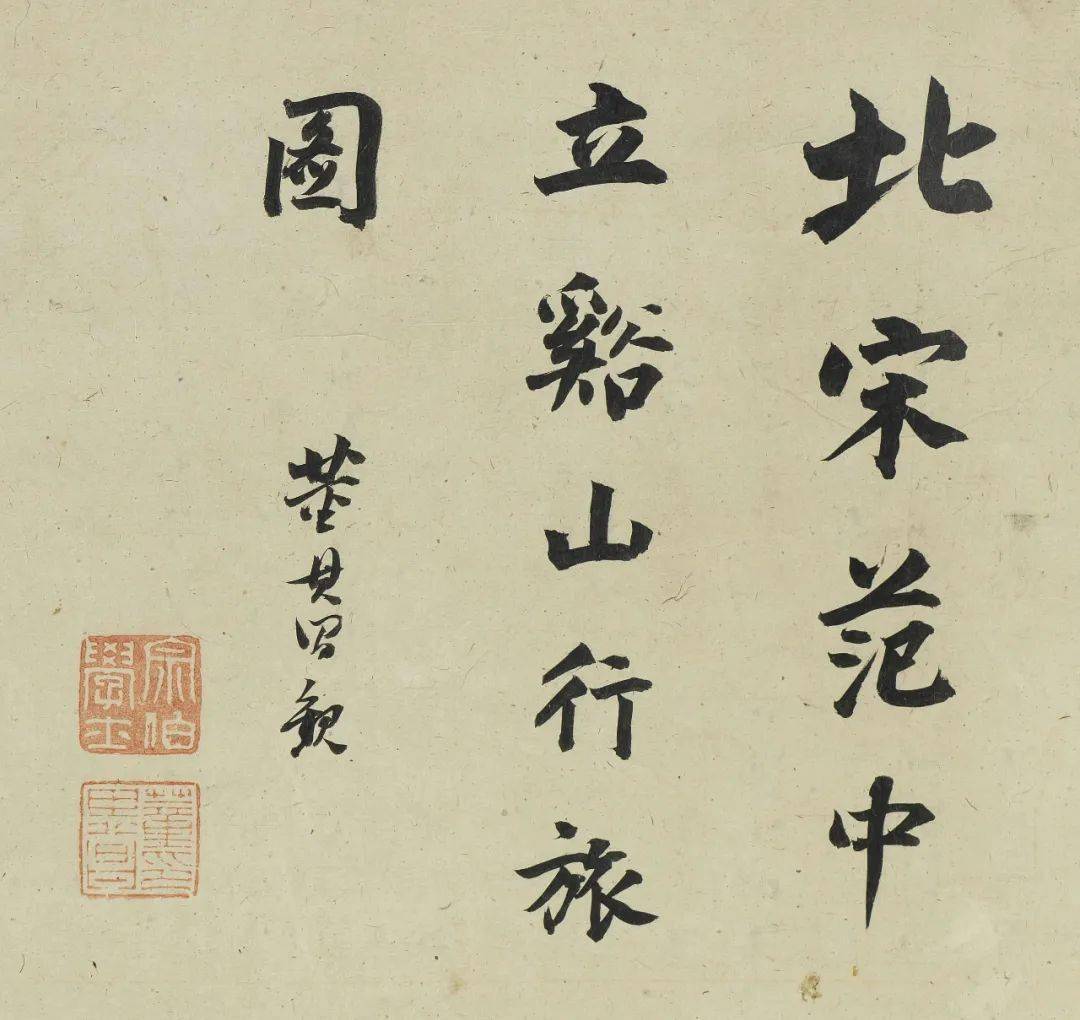 北宋范中
立谿山行旅
圖
董其昌觀
宗伯學士